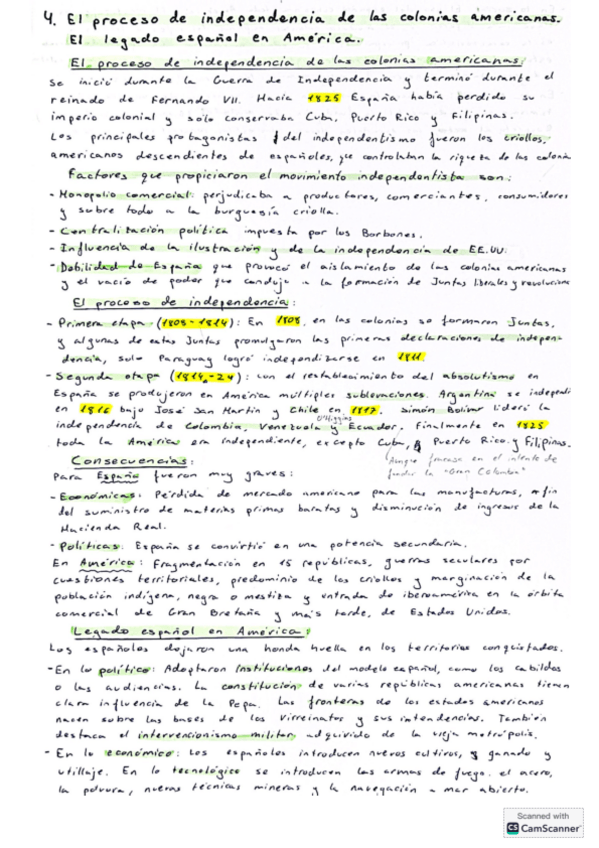 4. El proceso de independencia de las colonias americanas.
El legado español en América.
El proceso de independencia de las colonias americanas:
Se inició durante la Guerra de Independencia y terminó durante el
reinado de Fernando VII. Hacia 1825 España había perdido su
imperio colonial y solo conservaba Cuba, Puerto Rico y Filipinas.
Los principales protagonistas del independentismo fueron los criollos,
americanos descendientes de españoles, que controlaban la riqueza de las colonia
Factores que propiciaron el movimiento independentista son:
- Monopolio comercial: perjudicaba a productores, comerciantes, consumidores
y sobre todo a la burguesía criolla.
- Centralización política impuesta por los Borbones.
- Influencia de la ilustración y de la independencia de EE.UU.
- Debilidad de España que provocó el aislamiento de las colonias americanas
y el vacío de poder que condujo a la formación de Juntas liberales y revolucionar
El proceso de independencia:
- Primera etapa (1808-1814): En 1808, en las colonias se formaron Juntas,
y algunas de estas Juntas promulgaron las primeras declaraciones de indepen-
dencia, solo Paraguay logró independizarse en 1811.
- Segunda etapa (1814-24): con el restablecimiento del absolutismo en
España se produjeron en América múltiples sublevaciones. Argentina se independi
en 1816 bajo José San Martín y Chile en 1817. Simón Bolívar lideró la
O'Higgins
independencia de Colombia, Venezuela y Ecuador. Finalmente en 1825
toda la América era independiente, excepto Cuba, Puerto Rico y Filipinas.
Aunque fracasa en el intento de
fundar la "Gran Colombia"
Consecuencias:
Para España fueron muy graves:
- Económicas: Pérdida de mercado americano para las manufacturas, fin
del suministro de materias primas baratas y disminución de ingresos de la
Hacienda Real.
- Políticas: España se convirtió en una potencia secundaria.
En América: Fragmentación en 15 repúblicas, guerras seculares por
cuestiones territoriales, predominio de los criollos y marginación de la
población indígena, negra o mestiza y entrada de iberoamérica en la órbita
comercial de Gran Bretaña y más tarde, de Estados Unidos.
Legado español en América:
Los españoles dejaron una honda huella en los territorios conquistados.
- En lo político: Adoptaron instituciones del modelo español, como los cabildos
o las audiencias. La constitución de varias repúblicas americanas tienen
clara influencia de la Pepa. Las fronteras de los estados americanos
nacen sobre las bases de los virreinatos y sus intendencias. También
destaca el intervencionismo militar adquirido de la vieja metrópolis.
- En lo económico: Los españoles introducen nuevos cultivos, ganado y
utillaje. En lo tecnológico se introducen las armas de fuego, el acero,
la pólvora, nuevas técnicas mineras y la navegación a mar abierto.
Scanned with
CS CamScanner